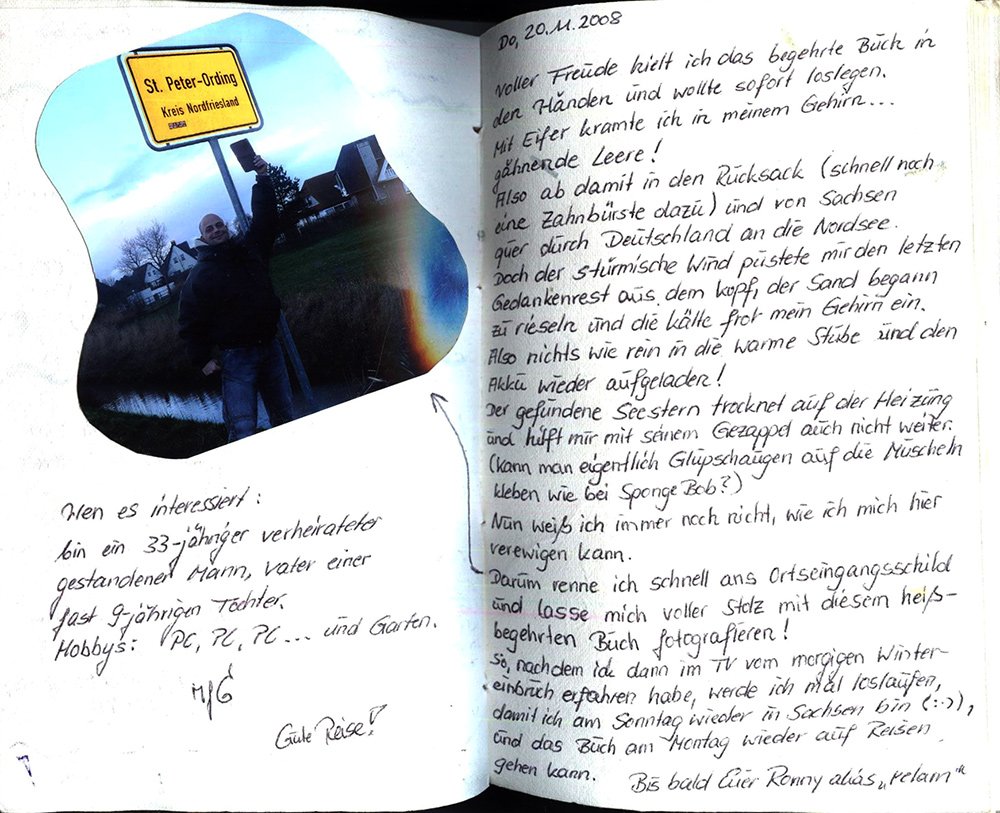 St. Peter-Ording
Kreis Nordfriesland
Wen es interessiert:
bin ein 33-jähriger verheirateter
gestandener Mann, Vater einer
fast 9-jährigen Tochter.
Hobbys: PC, PC, PC... und Garten.
MfG
Gute Reise!
Do, 20.11.2008
Voller Freude hielt ich das begehrte Buch in
den Händen und wollte sofort loslegen.
Mit Eifer kramte ich in meinem Gehirn...
gähnende Leere!
Also ab damit in den Rucksack (schnell noch
eine Zahnbürste dazu) und von Sachsen
quer durch Deutschland an die Nordsee.
Doch der stürmische Wind pustete mir den letzten
Gedankenrest aus dem Kopf, der Sand begann
zu rieseln und die Kälte frot mein Gehirn ein.
Also nichts wie rein in die warme Stube und den
Akku wieder aufgeladen!
Der gefundene Seestern trocknet auf der Heizung
und hilft mir mit seinem Gezappel auch nicht weiter.
(kann man eigentlich Glupschaugen auf die Muscheln
kleben wie bei Sponge Bob?)
Nun weiß ich immer noch nicht, wie ich mich hier
verewigen kann.
Darum renne ich schnell ans Ortseingangsschild
und lasse mich voller Stolz mit diesem heiß-
begehrten Buch fotografieren!
So, nachdem ich dann im TV vom morgigen Winter-
einbruch erfahren habe, werde ich mal loslaufen,
damit ich am Sonntag wieder in Sachsen bin (:-)),
und das Buch am Montag wieder auf Reisen
gehen kann.
Bis bald Euer Ronny alias „relam"